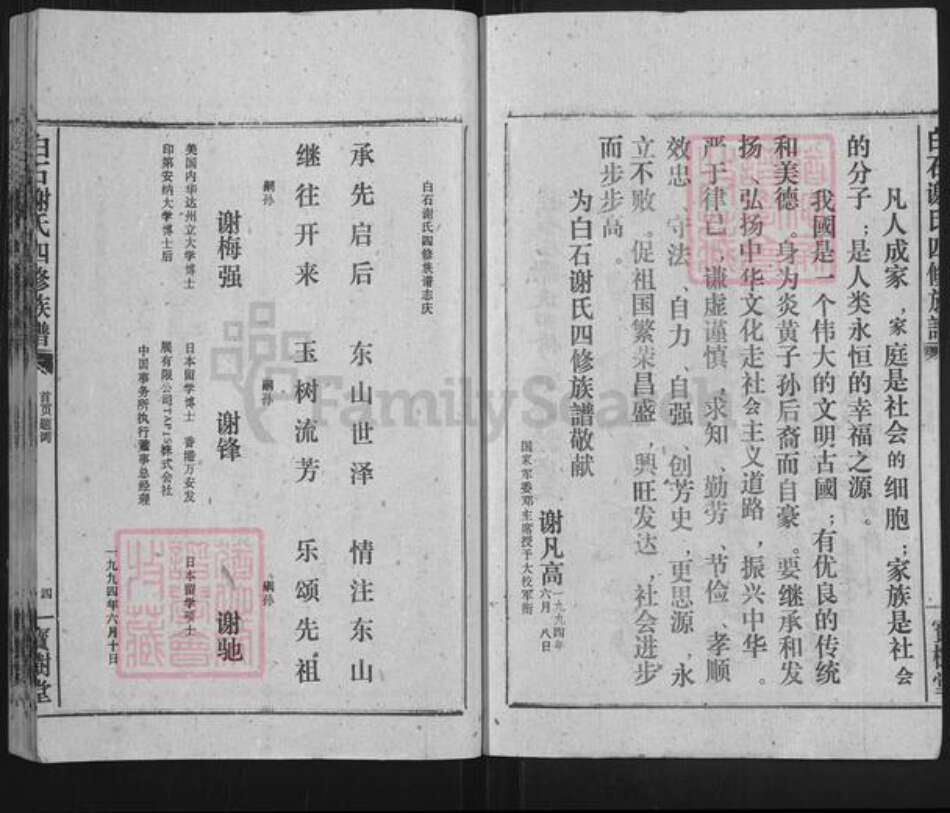 白石谢氏四修族譜
凡人成家，家庭是社会的细胞；家族是社会
的分子；是人类永恒的幸福之源。
我國是一个伟大的文明古國；有优良的传统
和美德。身为炎黄子孙后裔而自豪。要继承和发
扬、弘扬中华文化走社会主义道路，振兴中华。
严于律己、谦虚谨慎，求知、勤劳、节俭、孝顺
效忠、守法、自力、自强、创芳史，更思源，永
立不败。促祖国繁荣昌盛，興旺发达，社会进步
而步步高。
为白石谢氏四修族譜敬献
谢凡高
一九九四年
六月八日
国家军委邓主席授予大校军衔
寳樹堂
白石谢氏四修族谱志庆
承先启后 东山世泽 情注东山
继往开来 玉树流芳 乐颂先祖
嗣孙 嗣孙 嗣孙
谢梅强 谢锋 谢驰
美国内华达州立大学博士
印第安纳大学博士后
日本留学博士 香港万安发
展有限公司TAPIS株式会社
中国事务所执行董事总经理
日本留学硕士
一九九四年六月十日
白石谢氏四修族譜
首页题词
四
寳樹堂
FamilySearch